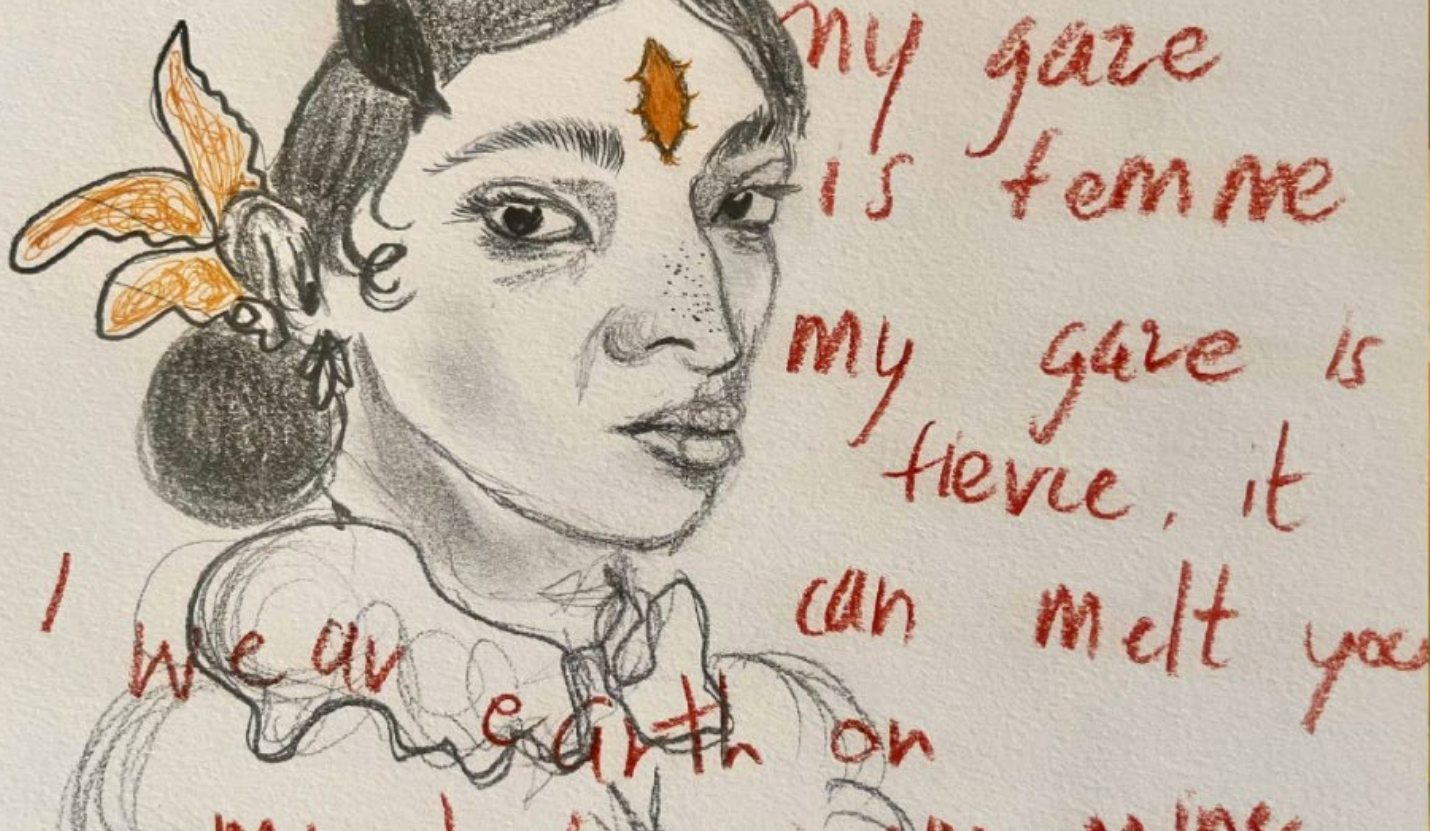 my gaze
is femme
my gaze is
fierce, it
can melt you
I
wear
earth on